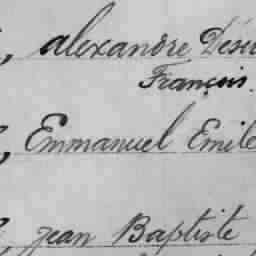 , alexandre Dési
François.
, Emmanuel Emile
, jean Baptiste